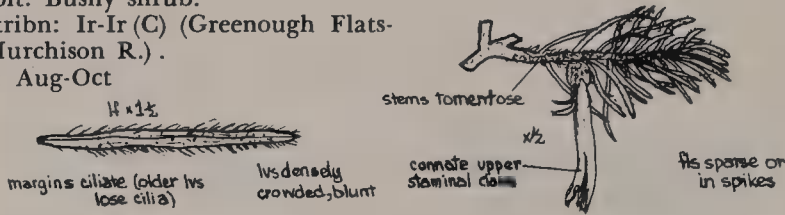 Bushy shrub.
Ir-Ir (C) (Greenough Flats-
Murchison R.).
Aug-Oct
lf x 1½
margins ciliate (older lvs
lose cilia)
lvs densely
crowded, blunt
stems tomentose
x½
connate upper
staminal claw
fls sparse or
in spikes